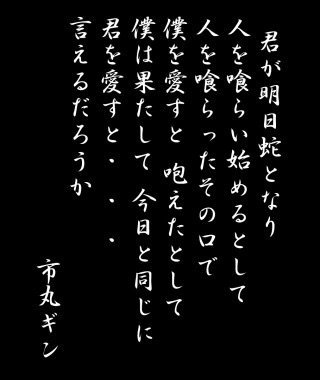 君が明日蛇となり
人を喰らい始めるとして
人を喰らったその口で
僕を愛すと 咆えたとして
僕は果たして 今日と同じに
君を愛すと・・・
言えるだろうか
市丸ギン